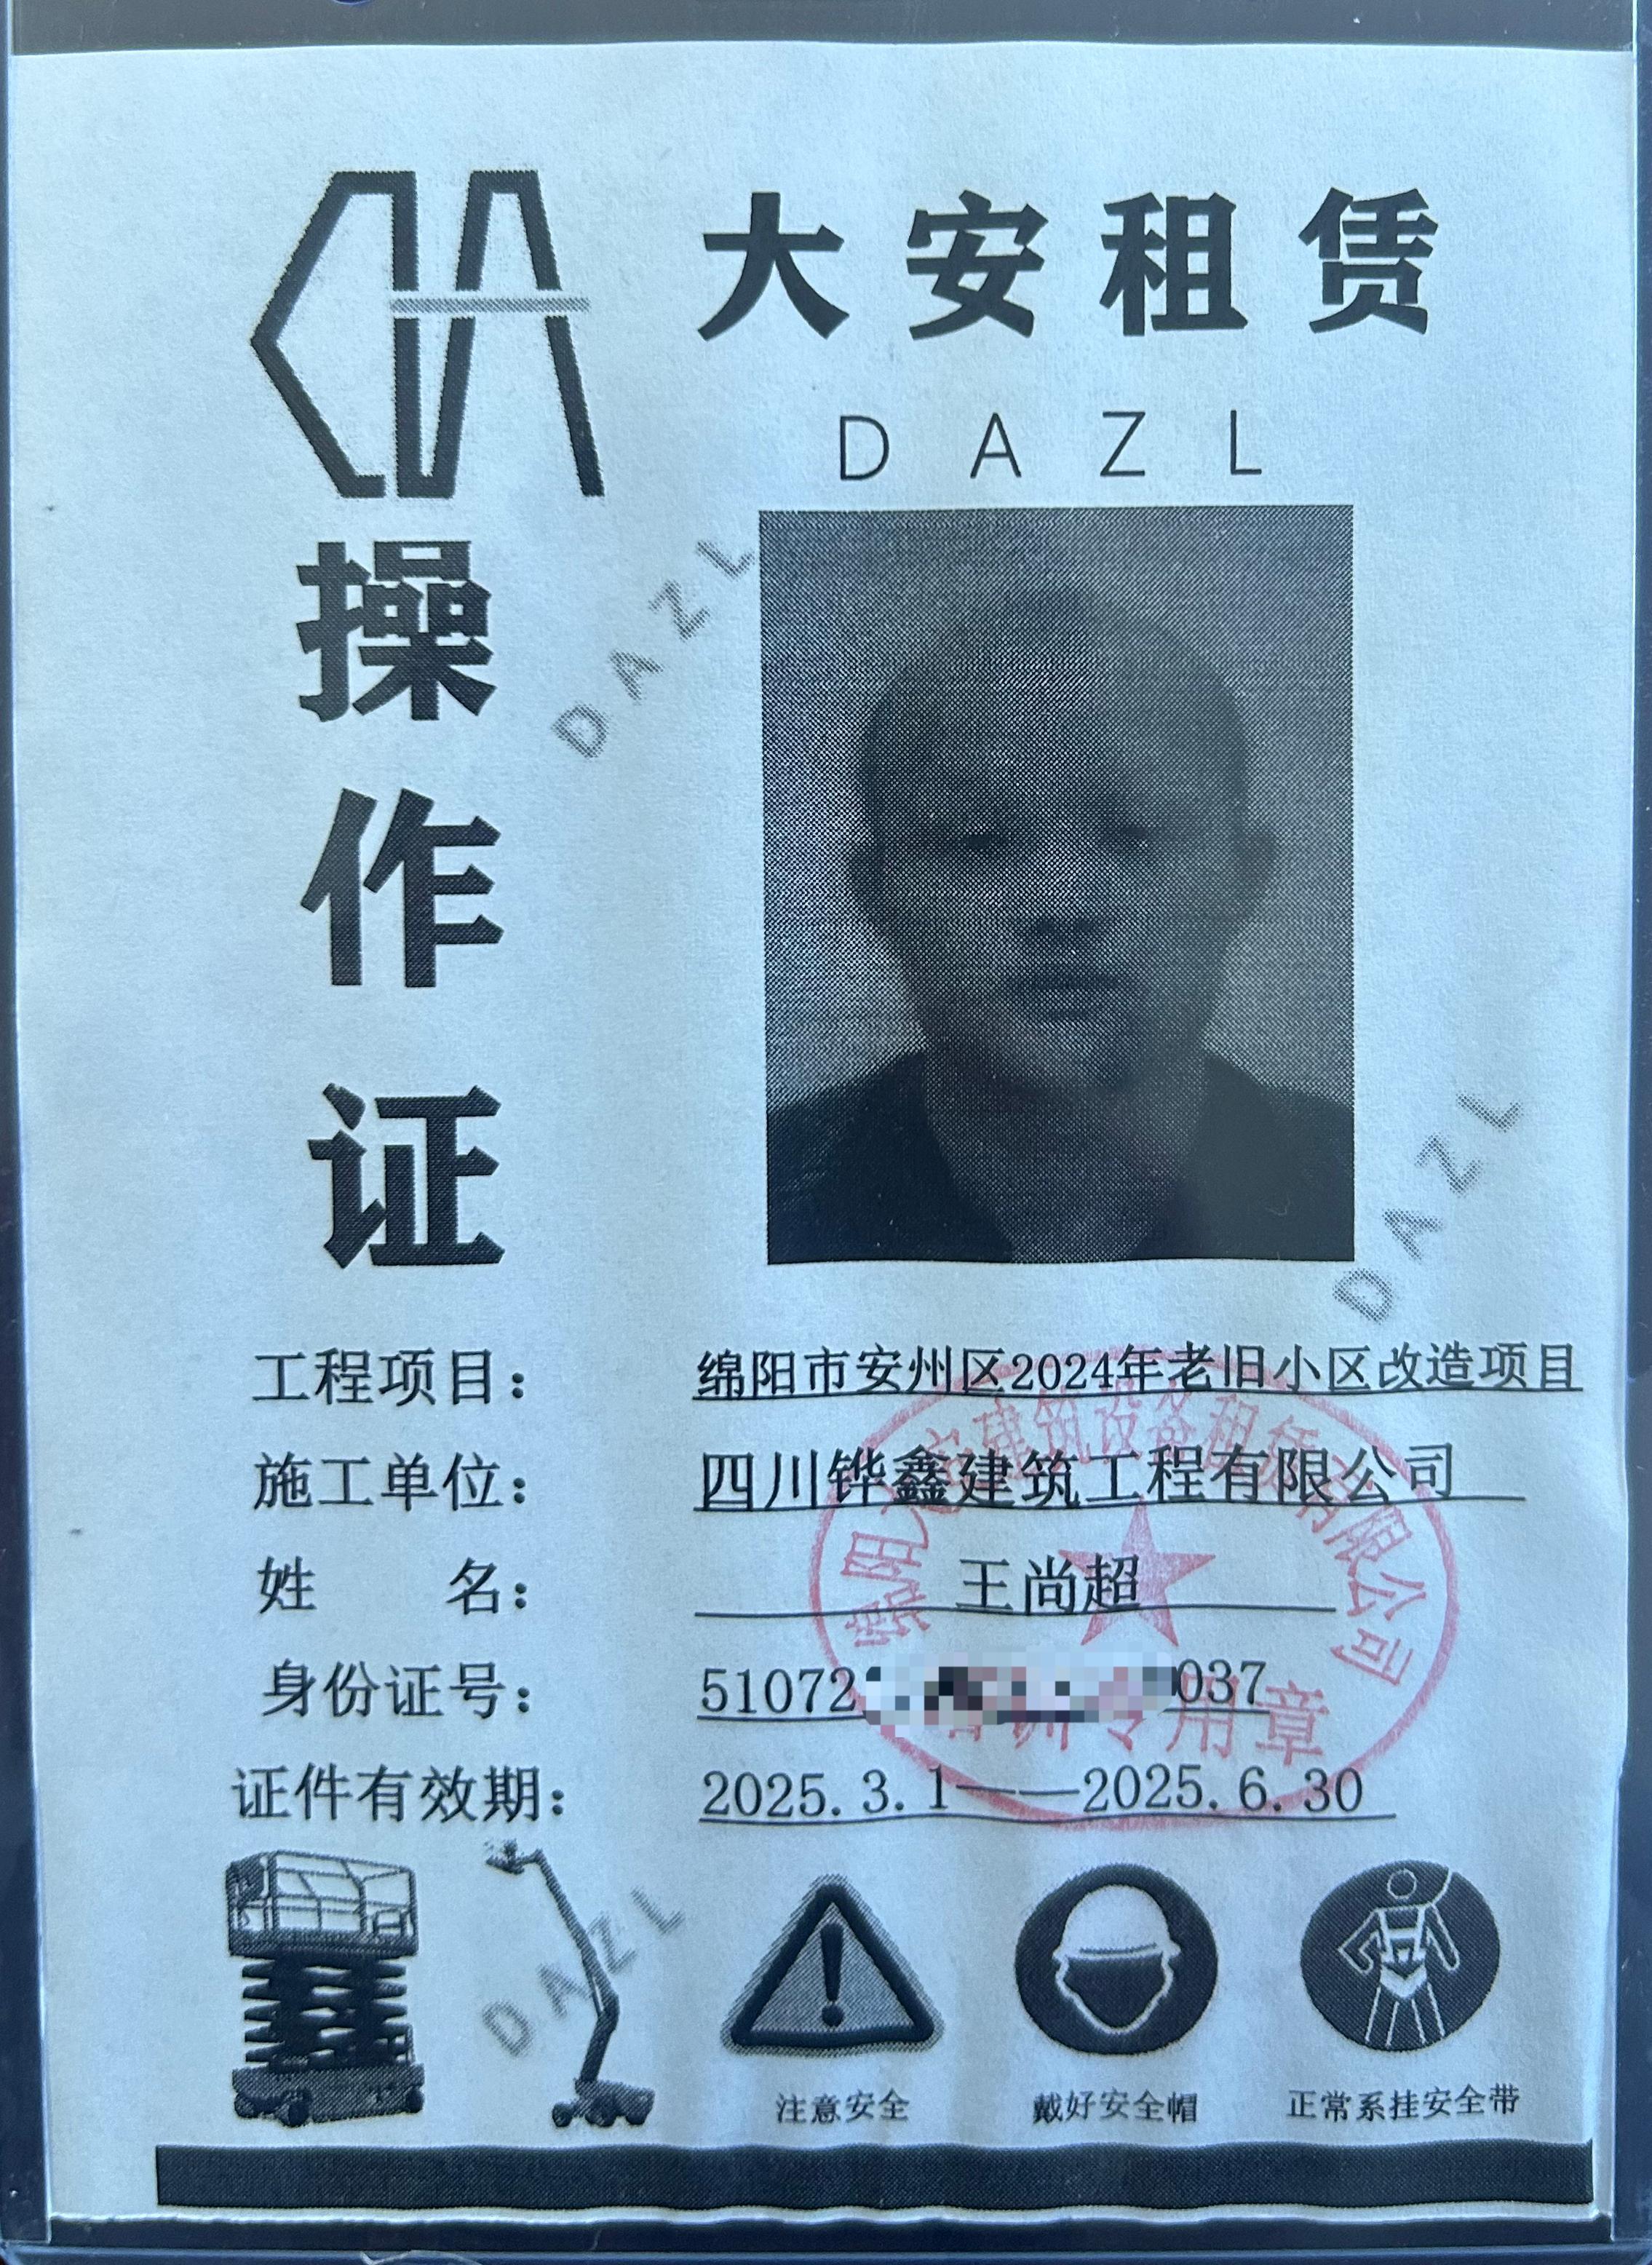 大安租赁
DAZL
操作证
DAZL
DAZL
工程项目： 绵阳市安州区2024年老旧小区改造项目
施工单位： 四川铧鑫建筑工程有限公司
姓 名： 王尚超
身份证号： 51072 037
证件有效期： 2025.3.1——2025.6.30
绵阳 安建筑设备租赁有限公司
培训专用章
DAZL
注意安全 戴好安全帽 正常系挂安全带